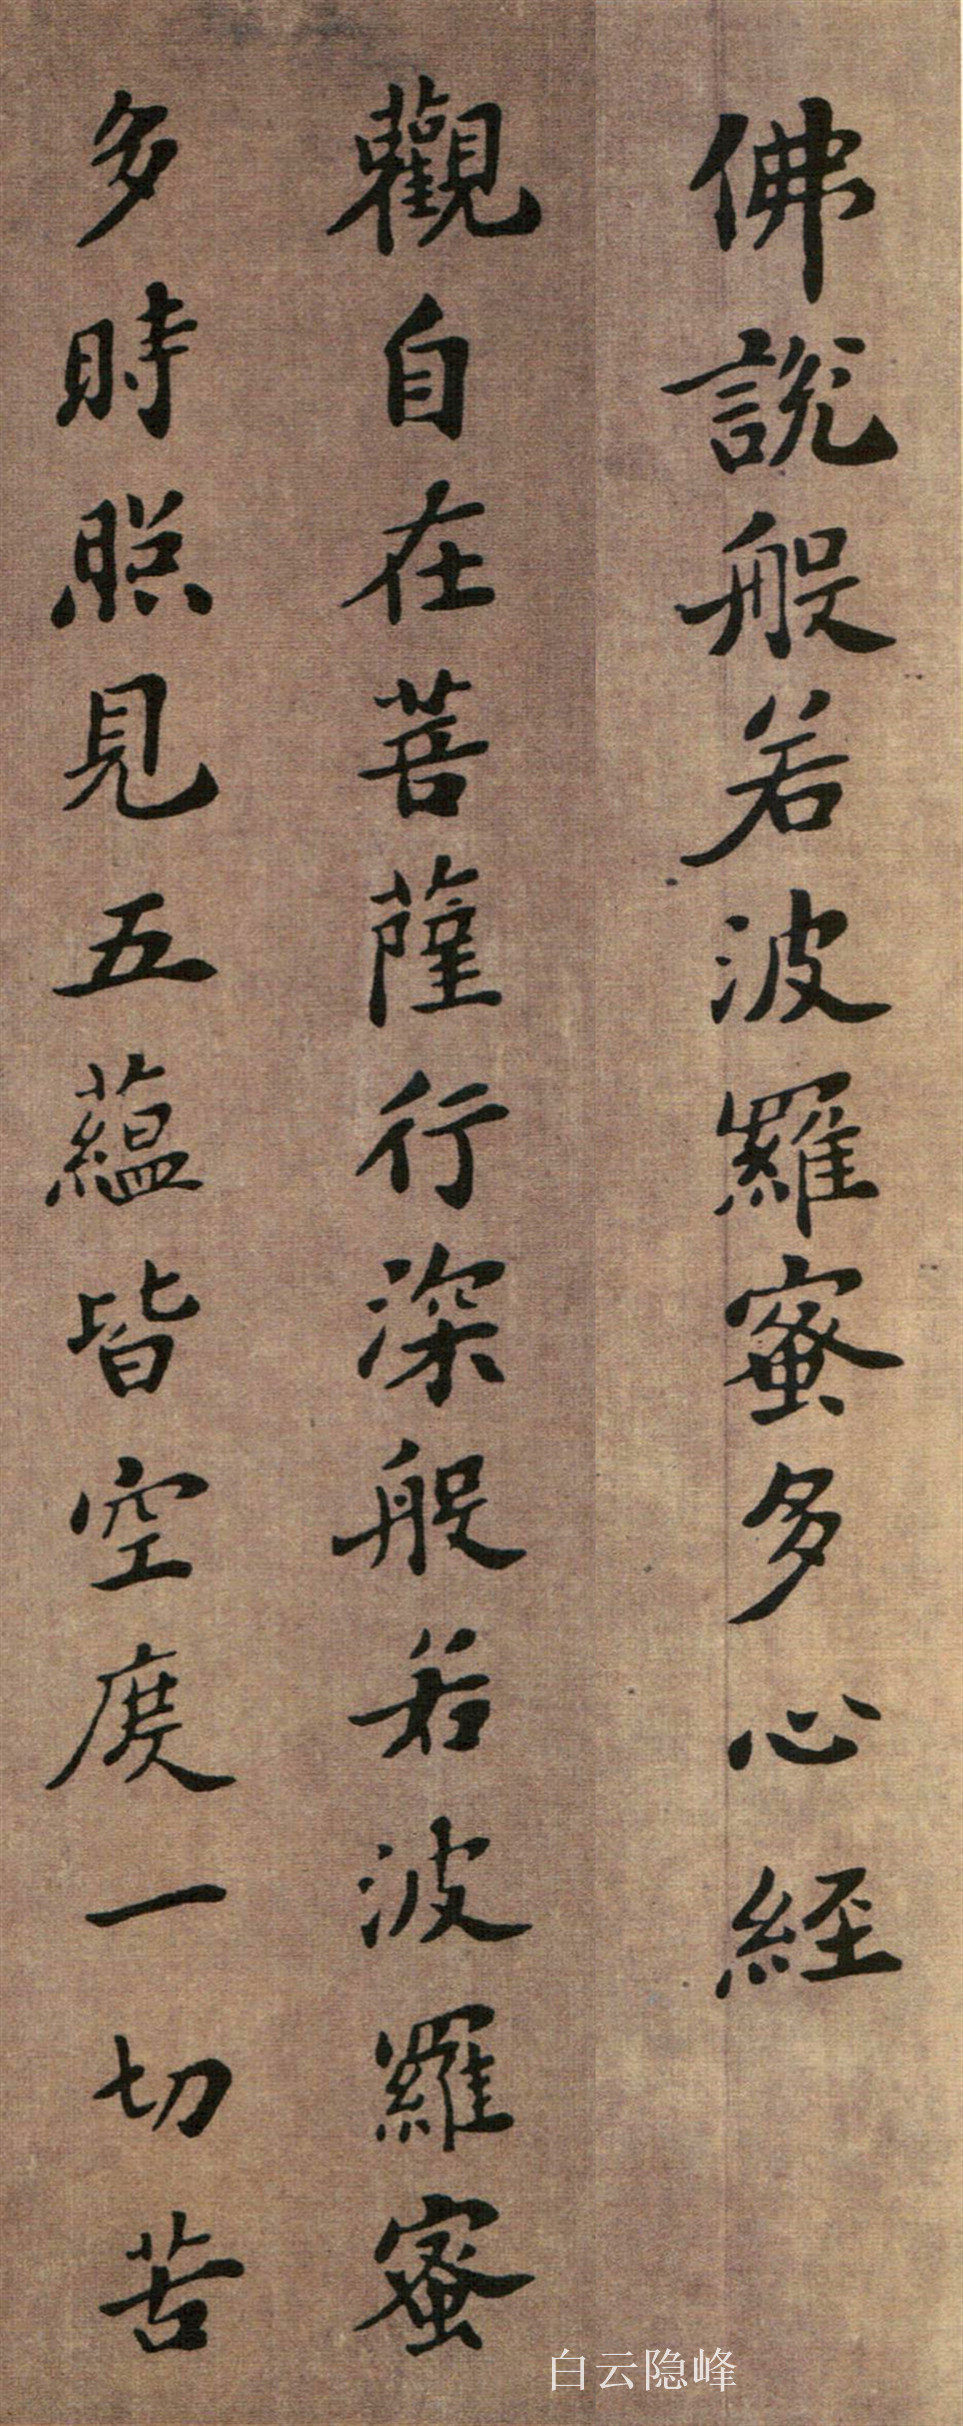 佛說般若波羅蜜多心經
觀自在菩薩行深般若波羅蜜
多時照見五蘊皆空度一切苦
白云隐峰